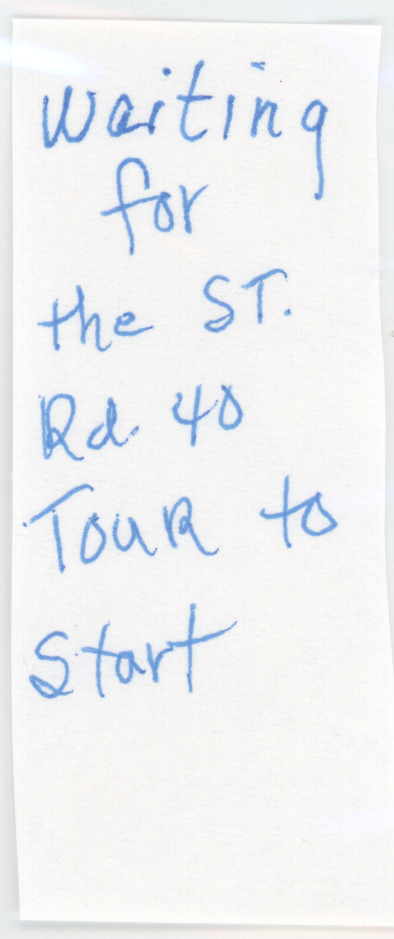 Waiting
for
the ST.
Rd. 40
Tour to
Start